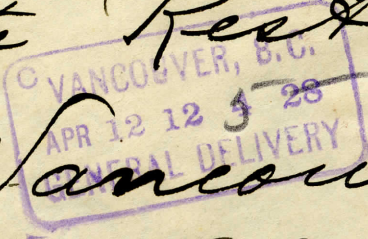 Rest
VANCOUVER, B.C.
APR 12 12 28
GENERAL DELIVERY
Vancou